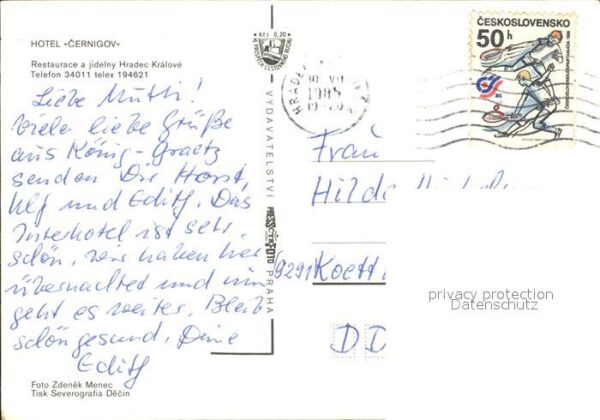 HOTEL «ČERNIGOV»
Restaurace a jídelny Hradec Králové
Telefon 34011 telex 194621
Liebe Mutti!
Viele liebe Grüße
aus König-Graetz
senden Dir Horst,
Ulf und Edith. Das
Interhotel ist sehr
schön, wir haben hier
übernachtet und nun
geht es weiter. Bleib
schön gesund, Deine
Edith
Foto Zdeněk Menec
Tisk Severografia Děčín
Kčs 0,20
VYDAVATELSTVÍ PRESSFOTO PRAHA
HRADEC
30 VII
1985
ČESKOSLOVENSKO
50h
Frau
Hilde
9291 Koett
DD
privacy protection
Datenschutz